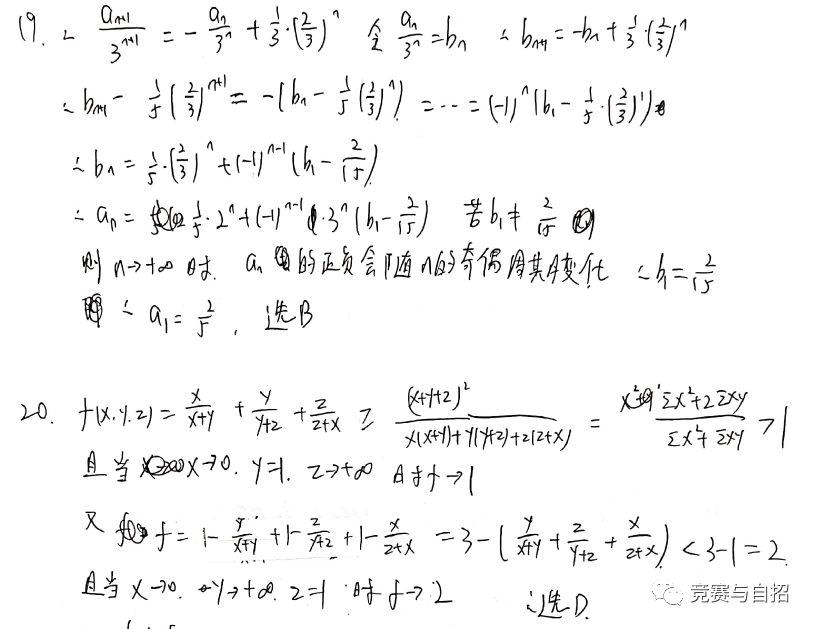 19. ∴ a_{n+1}/3^{n+1} = - a_n/3^n + 1/3·(2/3)^n 令 a_n/3^n = b_n ∴ b_{n+1} = -b_n + 1/3·(2/3)^n
∴ b_{n+1} - 1/5(2/3)^{n+1} = -(b_n - 1/5(2/3)^n) = ... = (-1)^n(b_1 - 1/5·(2/3)^1)
∴ b_n = 1/5·(2/3)^n + (-1)^{n-1}(b_1 - 2/15)
∴ a_n = 1/5·2^n + (-1)^{n-1}·3^n(b_1 - 2/15) 若 b_1 ≠ 2/15
则 n→+∞ 时. a_n 的正负会随n的奇偶周期变化 ∴ b_1 = 2/15
∴ a_1 = 2/5 . 选B
20. f(x.y.z) = x/(x+y) + y/(y+z) + z/(z+x) ≥ (x+y+z)^2/(x(x+y)+y(y+z)+z(z+x)) = (Σx^2+2Σxy)/(Σx^2+Σxy) > 1
且当 x→0. y=1. z→+∞ 时 f→1
又 f = 1 - y/(x+y) + 1 - z/(y+z) + 1 - x/(z+x) = 3 - (y/(x+y) + z/(y+z) + x/(z+x)) < 3-1 = 2
且当 x→0. y→+∞. z=1 时 f→2 选D.
竞赛与自招